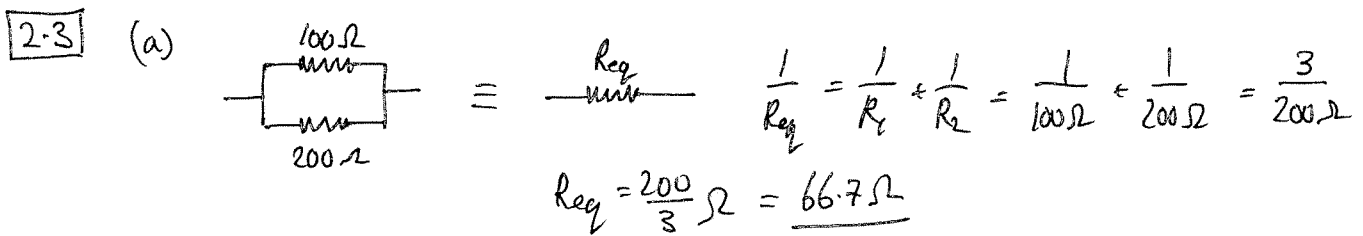 2.3 (a)
100Ω
200Ω
≡
Req
1/Req = 1/R₁ + 1/R₂ = 1/100Ω + 1/200Ω = 3/200Ω
Req = 200/3 Ω = 66.7Ω